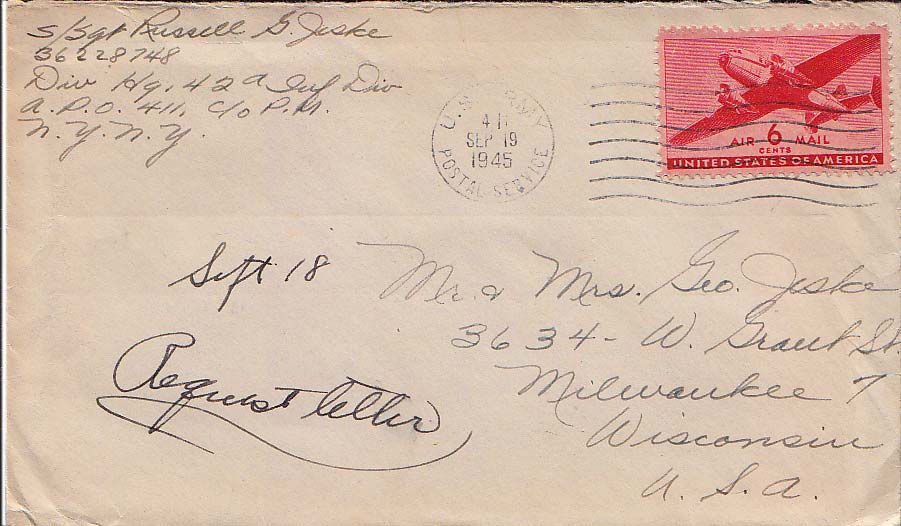 S/Sgt Russell G. Jeske
36228748
Div Hq. 42d Inf Div
A.P.O. 411, C/o P.M.
N.Y. N.Y.
U.S. ARMY
4 11
SEP 19
1945
POSTAL SERVICE
AIR 6 MAIL
CENTS
UNITED STATES OF AMERICA
Sept 18
Request letter
Mr. & Mrs. Geo. Jeske
3634 - W. Grant St.
Milwaukee 7
Wisconsin
U. S. A.